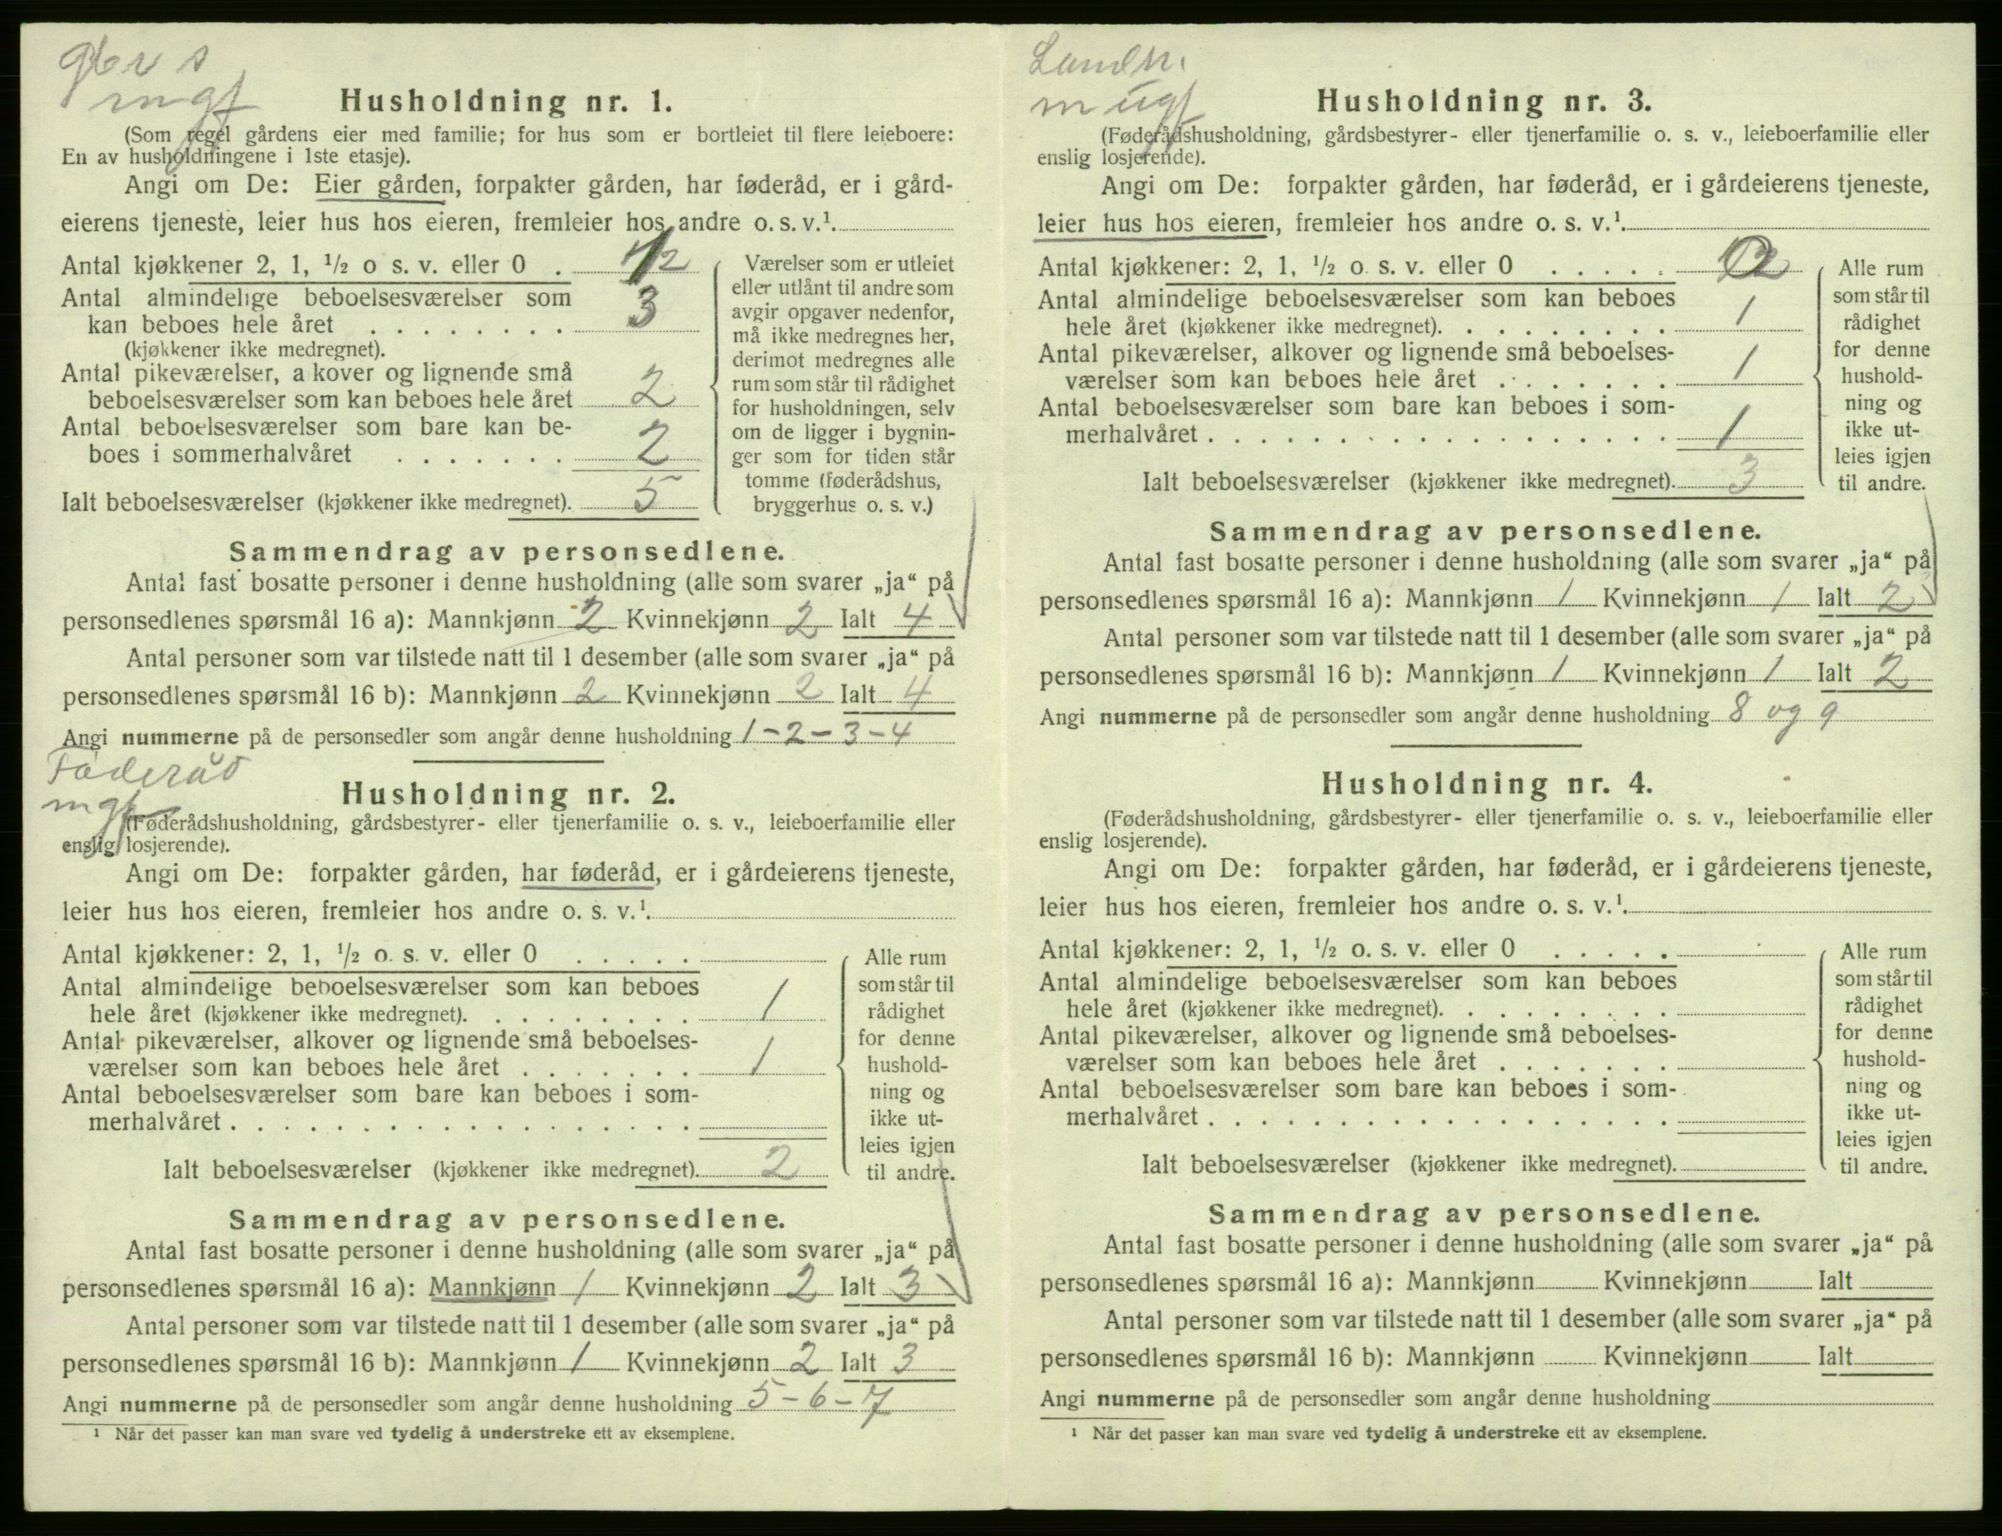 Husholdning nr. 1.
mgf
(Som regel gårdens eier med familie; for hus som er bortleiet til flere leieboere:
En av husholdningene i 1ste etasje).
Angi om De: Eier gården, forpakter gården, har føderåd, er i gård-
eierens tjeneste, leier hus hos eieren, fremleier hos andre o. s. v.¹
Antal kjøkkener 2, 1, ½ o s. v. eller 0 . 1/2
Antal almindelige beboelsesværelser som
kan beboes hele året . . . . . . . . 3
(kjøkkener ikke medregnet).
Antal pikeværelser, a kover og lignende små
beboelsesværelser som kan beboes hele året 2
Antal beboelsesværelser som bare kan be-
boes i sommerhalvåret . . . . . . . 2
Ialt beboelsesværelser (kjøkkener ikke medregnet). 5
Værelser som er utleiet
eller utlånt til andre som
avgir opgaver nedenfor,
må ikke medregnes her,
derimot medregnes alle
rum som står til rådighet
for husholdningen, selv
om de ligger i bygnin-
ger som for tiden står
tomme (føderådshus,
bryggerhus o. s. v.)
Sammendrag av personsedlene.
Antal fast bosatte personer i denne husholdning (alle som svarer „ja“ på
personsedlenes spørsmål 16 a): Mannkjønn 2 Kvinnekjønn 2 Ialt 4
Antal personer som var tilstede natt til 1 desember (alle som svarer „ja“ på
personsedlenes spørsmål 16 b): Mannkjønn 2 Kvinnekjønn 2 Ialt 4
Angi nummerne på de personsedler som angår denne husholdning 1 - 2 - 3 - 4
Føderåd
Husholdning nr. 2.
mgf
(Føderådshusholdning, gårdsbestyrer- eller tjenerfamilie o. s. v., leieboerfamilie eller
enslig losjerende).
Angi om De: forpakter gården, har føderåd, er i gårdeierens tjeneste,
leier hus hos eieren, fremleier hos andre o. s. v.¹.
Antal kjøkkener: 2, 1, ½ o. s. v. eller 0 . . . . .
Antal almindelige beboelsesværelser som kan beboes
hele året (kjøkkener ikke medregnet). . . . . . . . . 1
Antal pikeværelser, alkover og lignende små beboelses-
værelser som kan beboes hele året . . . . . . . 1
Antal beboelsesværelser som bare kan beboes i som-
merhalvåret . . . . . . . . . . . . . . . . . .
Ialt beboelsesværelser (kjøkkener ikke medregnet). 2
Alle rum
som står til
rådighet
for denne
hushold-
ning og
ikke ut-
leies igjen
til andre.
Sammendrag av personsedlene.
Antal fast bosatte personer i denne husholdning (alle som svarer „ja“ på
personsedlenes spørsmål 16 a): Mannkjønn 1 Kvinnekjønn 2 Ialt 3
Antal personer som var tilstede natt til 1 desember (alle som svarer „ja“ på
personsedlenes spørsmål 16 b): Mannkjønn 1 Kvinnekjønn 2 Ialt 3
Angi nummerne på de personsedler som angår denne husholdning 5 - 6 - 7
¹ Når det passer kan man svare ved tydelig å understreke ett av eksemplene.
Husholdning nr. 3.
mugf
(Føderådshusholdning, gårdsbestyrer- eller tjenerfamilie o. s. v., leieboerfamilie eller
enslig losjerende).
Angi om De: forpakter gården, har føderåd, er i gårdeierens tjeneste,
leier hus hos eieren, fremleier hos andre o. s. v.¹.
Antal kjøkkener: 2, 1, ½ o. s. v. eller 0 . . . . .
Antal almindelige beboelsesværelser som kan beboes
hele året (kjøkkener ikke medregnet). . . . . . . . . 1
Antal pikeværelser, alkover og lignende små beboelses-
værelser som kan beboes hele året . . . . . . . 1
Antal beboelsesværelser som bare kan beboes i som-
merhalvåret . . . . . . . . . . . . . . . . . . 1
Ialt beboelsesværelser (kjøkkener ikke medregnet). 3
Alle rum
som står til
rådighet
for denne
hushold-
ning og
ikke ut-
leies igjen
til andre.
Sammendrag av personsedlene.
Antal fast bosatte personer i denne husholdning (alle som svarer „ja“ på
personsedlenes spørsmål 16 a): Mannkjønn 1 Kvinnekjønn 1 Ialt 2
Antal personer som var tilstede natt til 1 desember (alle som svarer „ja“ på
personsedlenes spørsmål 16 b): Mannkjønn 1 Kvinnekjønn 1 Ialt 2
Angi nummerne på de personsedler som angår denne husholdning 8 og 9
Husholdning nr. 4.
(Føderådshusholdning, gårdsbestyrer- eller tjenerfamilie o. s. v., leieboerfamilie eller
enslig losjerende).
Angi om De: forpakter gården, har føderåd, er i gårdeierens tjeneste,
leier hus hos eieren, fremleier hos andre o. s. v.¹.
Antal kjøkkener: 2, 1, ½ o. s. v. eller 0 . . . . .
Antal almindelige beboelsesværelser som kan beboes
hele året (kjøkkener ikke medregnet). . . . . . . . .
Antal pikeværelser, alkover og lignende små beboelses-
værelser som kan beboes hele året . . . . . . .
Antal beboelsesværelser som bare kan beboes i som-
merhalvåret . . . . . . . . . . . . . . . . . .
Ialt beboelsesværelser (kjøkkener ikke medregnet).
Alle rum
som står til
rådighet
for denne
hushold-
ning og
ikke ut-
leies igjen
til andre.
Sammendrag av personsedlene.
Antal fast bosatte personer i denne husholdning (alle som svarer „ja“ på
personsedlenes spørsmål 16 a): Mannkjønn Kvinnekjønn Ialt
Antal personer som var tilstede natt til 1 desember (alle som svarer „ja“ på
personsedlenes spørsmål 16 b): Mannkjønn Kvinnekjønn Ialt
Angi nummerne på de personsedler som angår denne husholdning
¹ Når det passer kan man svare ved tydelig å understreke ett av eksemplene.